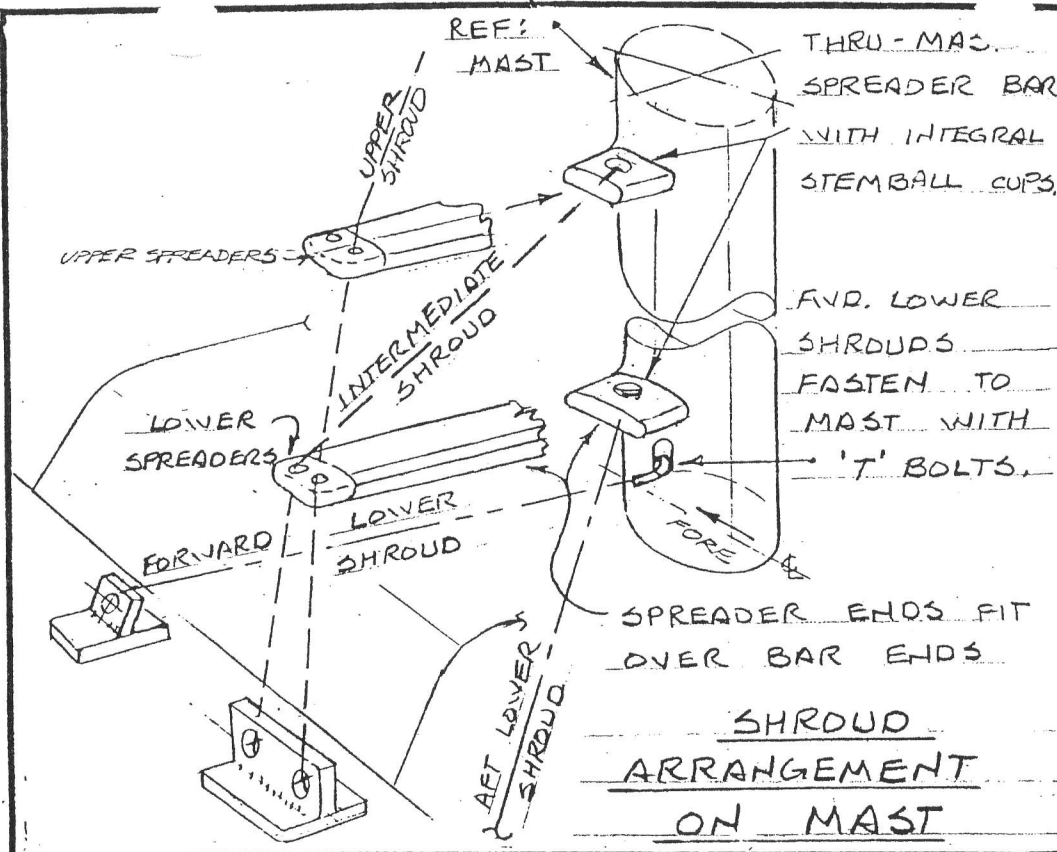 REF:
MAST
THRU-MAS.
SPREADER BAR
WITH INTEGRAL
STEMBALL CUPS.
UPPER
SHROUD
UPPER SPREADERS
INTERMEDIATE
SHROUD
LOWER
SPREADERS
FWD. LOWER
SHROUDS
FASTEN TO
MAST WITH
'T' BOLTS.
FORWARD LOWER
SHROUD
FORE
℄
SPREADER ENDS FIT
OVER BAR ENDS
AFT LOWER
SHROUD
SHROUD
ARRANGEMENT
ON MAST